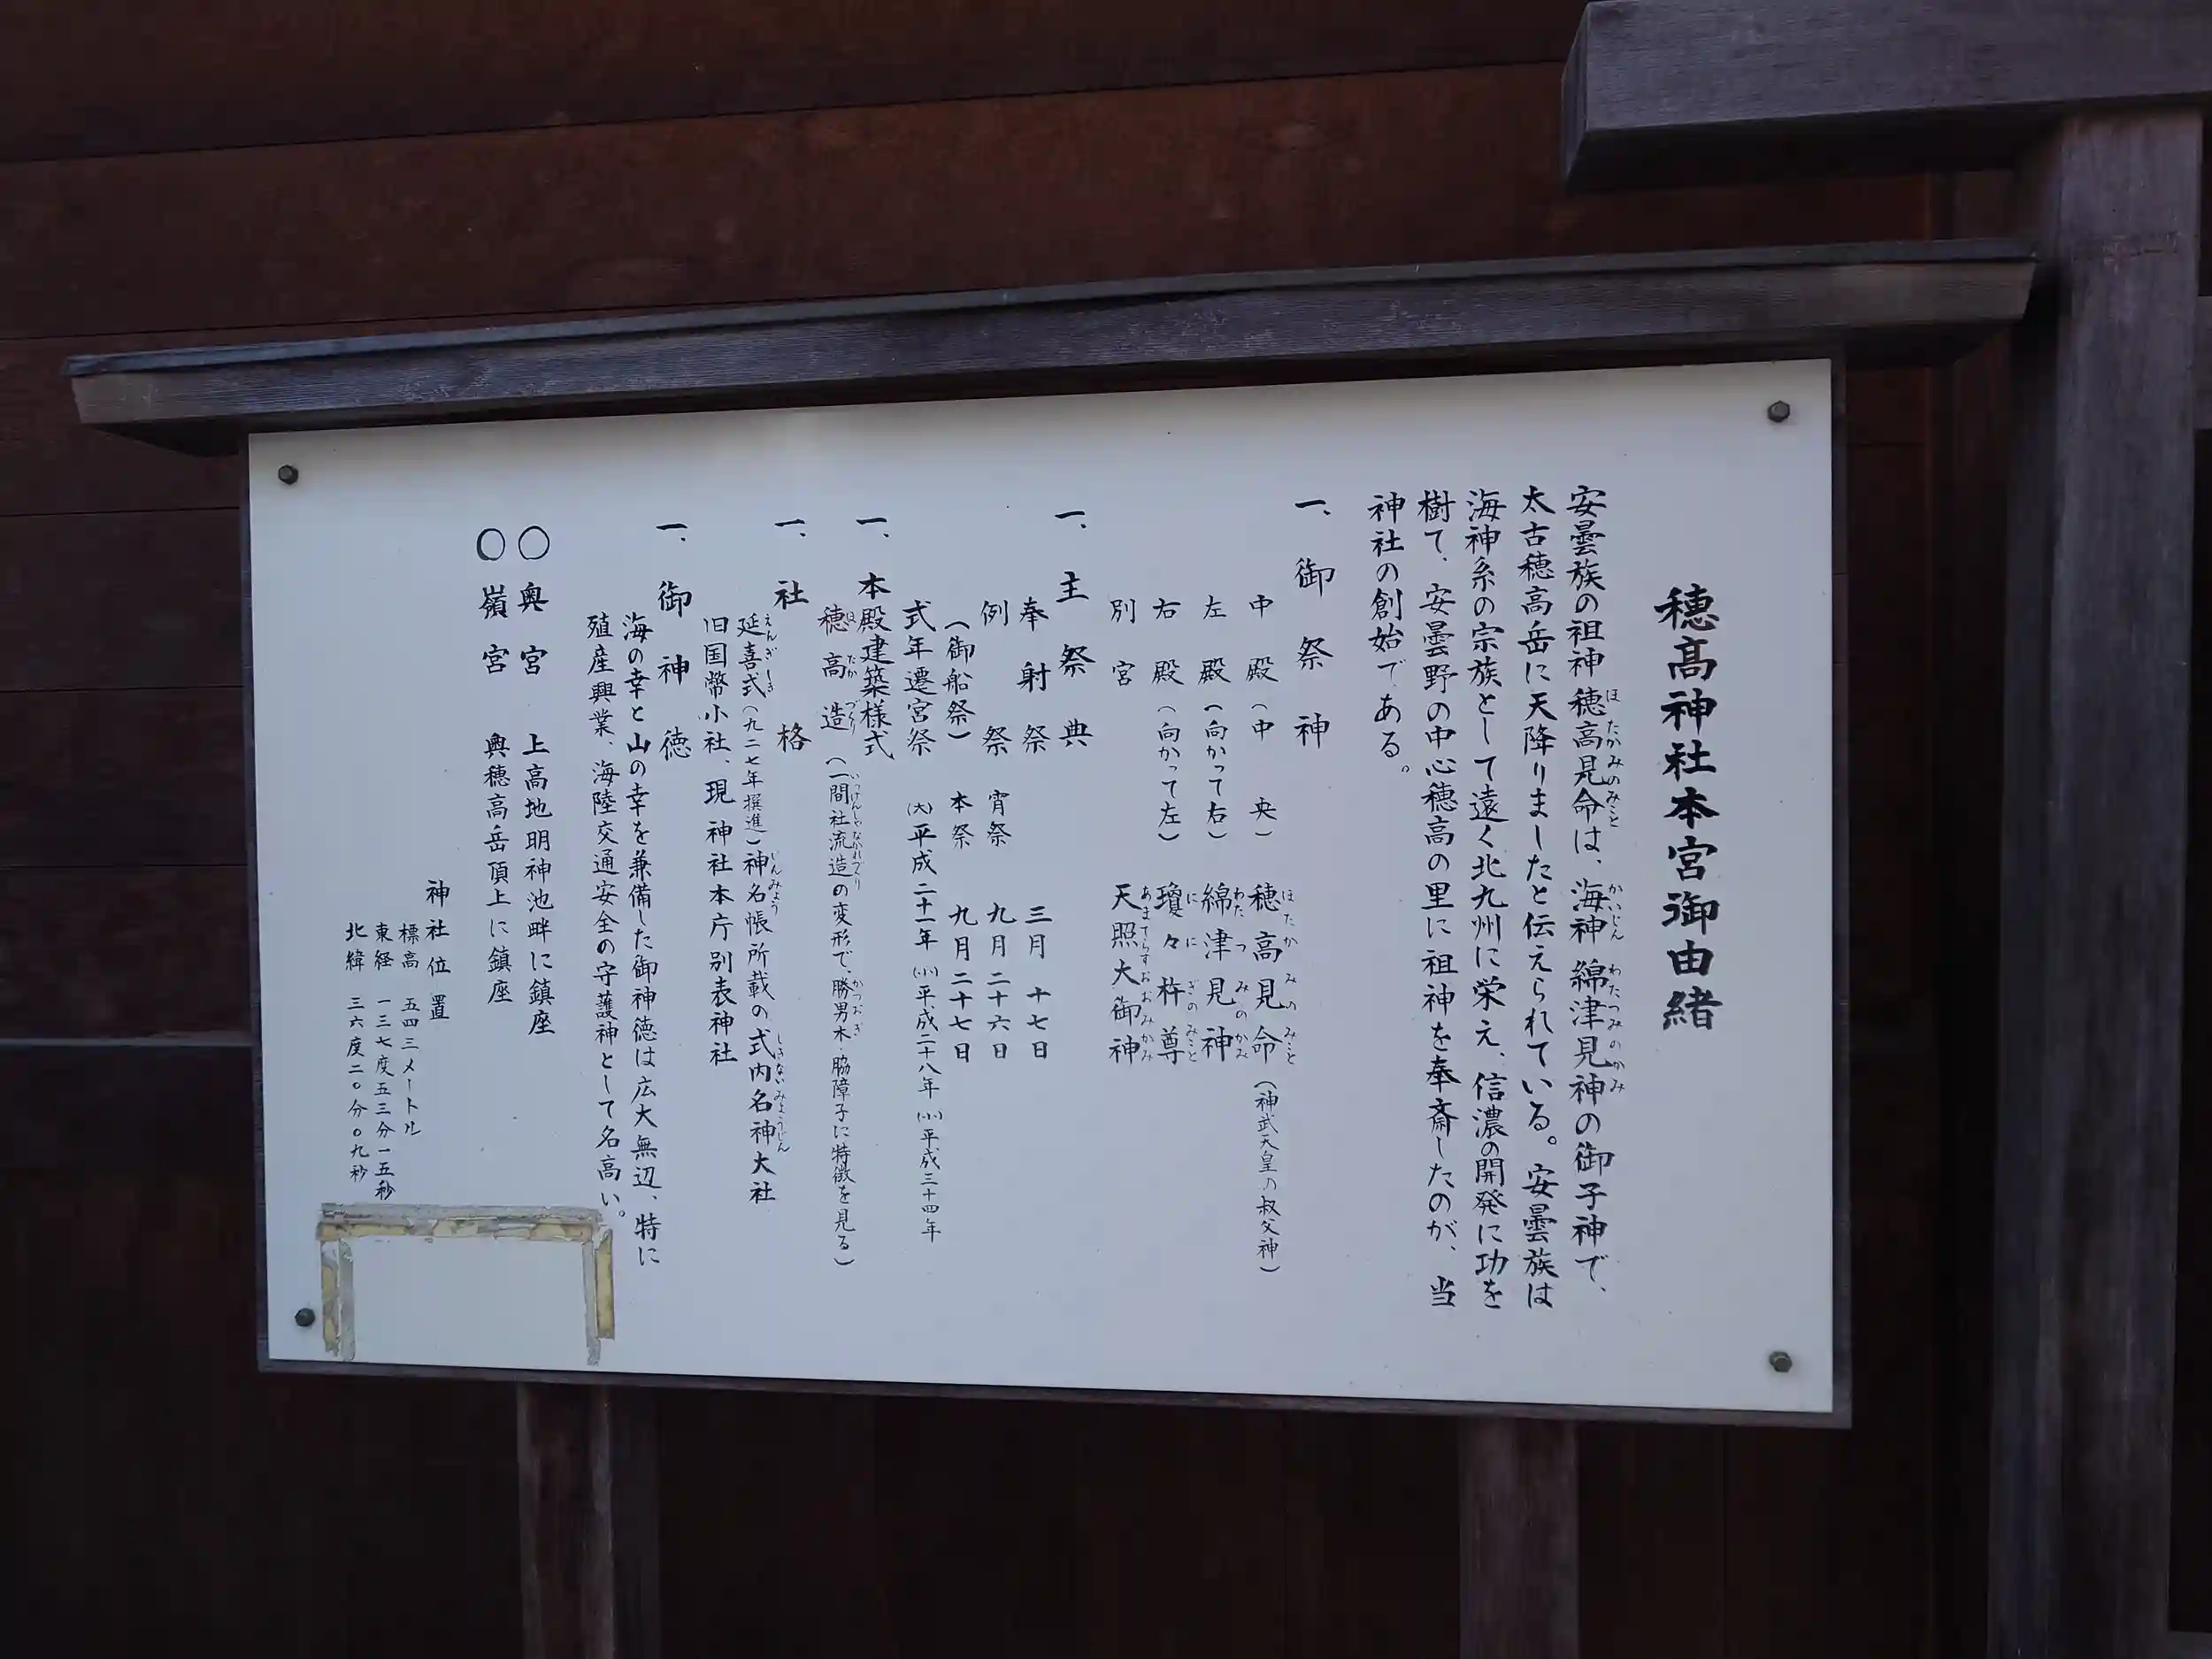 穂髙神社本宮御由緒
安曇族の祖神穂高見命は、海神綿津見神の御子神で、
太古穂高岳に天降りましたと伝えられている。安曇族は
海神系の宗族として遠く北九州に栄え、信濃の開発に功を
樹て、安曇野の中心穂高の里に祖神を奉斎したのが、当
神社の創始である。
一、御祭神
中殿(中央) 穂高見命(神武天皇の叔父神)
左殿(向かって右) 綿津見神
右殿(向かって左) 瓊々杵尊
別宮 天照大御神
一、主祭典
奉射祭 三月十七日
例祭 宵祭 九月二十六日
(御船祭) 本祭 九月二十七日
式年遷宮祭 (大)平成二十一年 (小)平成二十八年 (小)平成三十四年
一、本殿建築様式
穂高造(一間社流造の変形で、勝男木・脇障子に特徴を見る)
一、社格
延喜式(九二七年撰進)神名帳所載の式内名神大社
旧国幣小社、現神社本庁別表神社
一、御神徳
海の幸と山の幸を兼備した御神徳は広大無辺、特に
殖産興業、海陸交通安全の守護神として名高い。
○奥宮 上高地明神池畔に鎮座
○嶺宮 奥穂高岳頂上に鎮座
神社位置
標高 五四三メートル
東経 一三七度五三分一五秒
北緯 三六度二〇分〇九秒